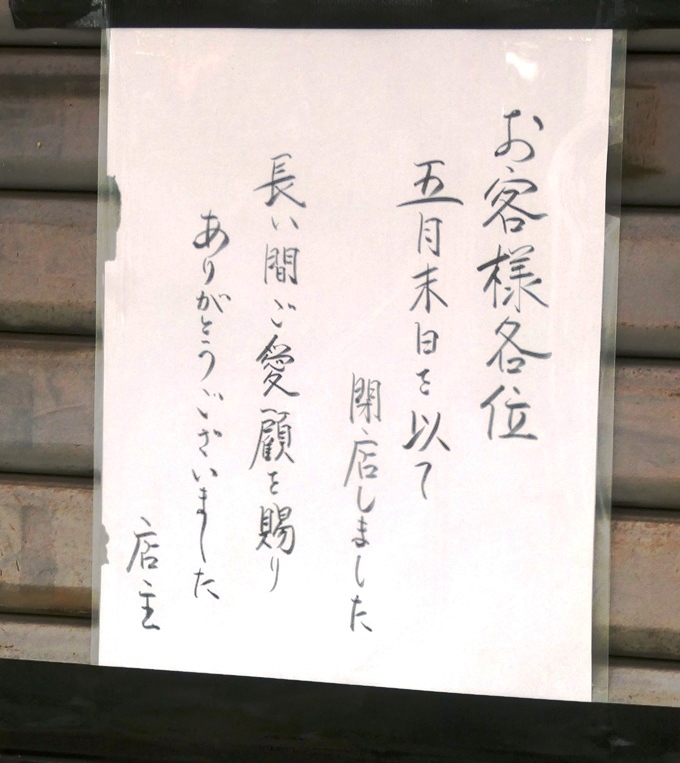 お客様各位
五月末日を以て
閉店しました
長い間ご愛顧を賜り
ありがとうございました
店主